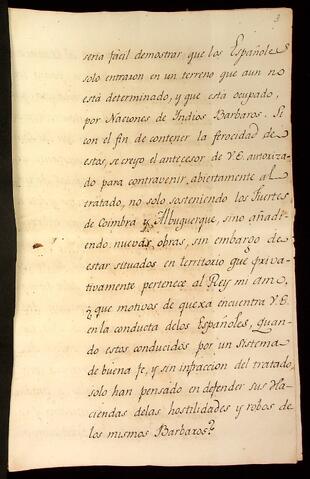 3
seria fácil demostrar que los Españoles
solo entraron en un terreno que aun no
está determinado, y que está ocupado,
por Naciones de Indios Barbaros. Si
con el fin de contener la ferocidad de
estos, se creyo el antecesor de V.E. autoriza-
do para contravenir, abiertamente al
tratado, no solo sosteniendo los Fuertes
de Coimbra y Albuquerque, sino añadi-
endo nuevas obras, sin embargo de
estar situados en territorio que priva-
tivamente pertenece al Rey mi amo,
¿que motivos de quexa encuentra V.E.
en la conducta delos Españoles, quan-
do estos conducidos por un sistema
de buena fe, y sin infraccion del tratado,
solo han pensado en defender sus Ha-
ciendas delas hostilidades y robos de
los mismos Barbaros?